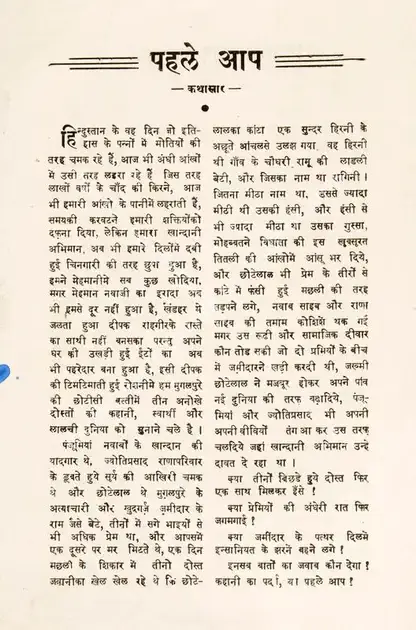 पहले आप
— कथासार —
हिन्दुस्तान के वह दिन जो इति-
हास के पन्नों में मोतियों की
तरह चमक रहे हैं, आज भी अंधी आंखों
में उसी तरह लहरा रहे हैं जिस तरह
लाखों वर्षों के चाँद की किरनें, आज
भी हमारी आंखों के पानीमें लहराती हैं,
समयकी करवटने हमारी शक्तियोंको
दफ़ना दिया, लेकिन हमारा खान्दानी
अभिमान, अब भी हमारे दिलोंमें दबी
हुई चिनगारी की तरह छुपा हुआ है,
हमने मेहमानीमें सब कुछ खोदिया,
मगर मेहमान नवाजी का इरादा अब
भी हमसे दूर नहीं हुआ है, खंडहर में
जलता हुआ दीपक राहगीरके रास्ते
का साथी नहीं बनसका परन्तु अपने
घर की उखड़ी हुई ईंटों का अब
भी पहरेदार बना हुआ है, इसी दीपक
की टिमटिमाती हुई रोशनीमें हम मुगलपुरे
की छोटीसी बस्तीमें तीन अनोखे
दोस्तों की कहानी, स्वार्थी और
लालची दुनिया को सुनाने चले है ।
पंजूमियां नवाबों के खान्दान की
यादगार थे, ज्योतिप्रसाद राणापरिवार
के डूबते हुये सूर्य की आखिरी चमक
थे और छोटेलाल थे मुगलपुरे के
अत्याचारी और खुदगर्ज ज़मींदार के
राम जैसे बेटे, तीनों में सगे भाइयों से
भी अधिक प्रेम था, और आपसमें
एक दूसरे पर मर मिटते थे, एक दिन
मछली के शिकार में तीनों दोस्त
जवानीका खेल खेल रहे थे कि छोटे-
लालका कांटा एक सुन्दर हिरनी के
अछूते आंचलसे उलझ गया, वह हिरनी
थी गाँव के चौधरी रामू की लाडली
बेटी, और जिसका नाम था रागिनी ।
जितना मीठा नाम था, उससे ज्यादा
मीठी थी उसकी हंसी, और हंसी से
भी ज्यादा मीठा था उसका गुस्सा,
मोहब्बतने विधाता की इस खूबसुरत
तितली की आंखोंमें आंसू भर दिये,
और छोटेलाल भी प्रेम के तीरों से
कांटे में फंसी हुई मछली की तरह
तड़पने लगे, नवाब साहब और राणा
साहब की तमाम कोशिशें थक गई
मगर उस रूढी और सामाजिक दीवार
कौन तोड सकी जो दो प्रेमियों के बीच
में जमींदारने खड़ी करदी थी, जख्मी
छोटेलाल ने मजबूर होकर अपने पांव
नई दुनिया की तरफ बढ़ादिये, पंजू-
मियां और ज्योतिप्रसाद भी अपनी
अपनी बीवियों से तंग आ कर उस तरफ
चलदिये जहां खान्दानी अभिमान उन्हें
दावत दे रहा था ।
क्या तीनों बिछडे हुये दोस्त फिर
एक साथ मिलकर हँसे ?
क्या प्रेमियों की अंधेरी रात फिर
जगमगाई ?
क्या जमींदार के पत्थर दिलमें
इन्सानियत के झरने बहने लगे ?
इनसब बातों का जवाब कौन देगा !
कहानी का पर्दा, या पहले आप !